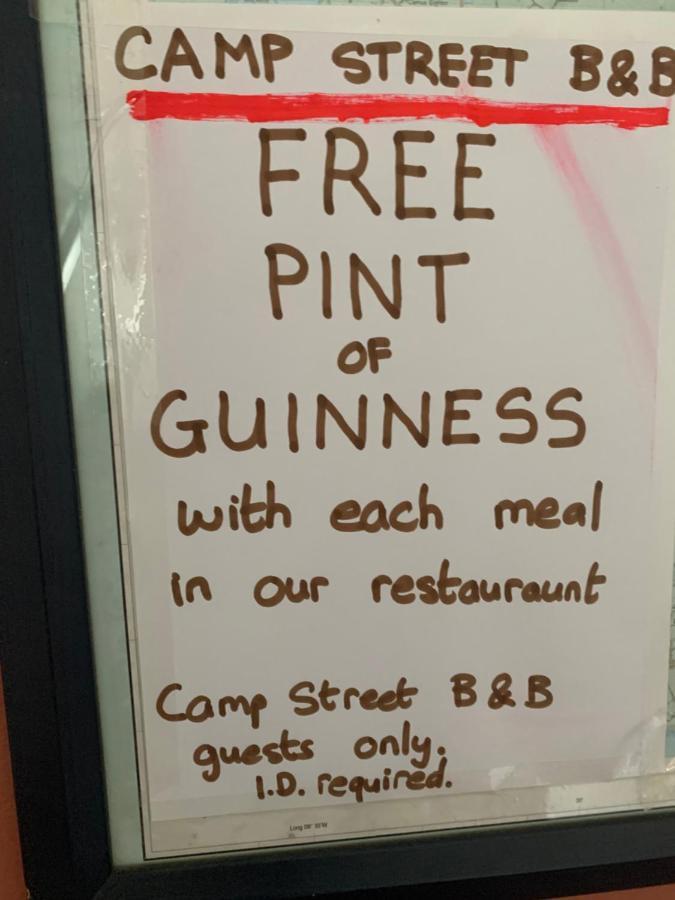 CAMP STREET B&B
FREE
PINT
OF
GUINNESS
with each meal
in our restauraunt
Camp Street B&B
guests only.
I.D. required.